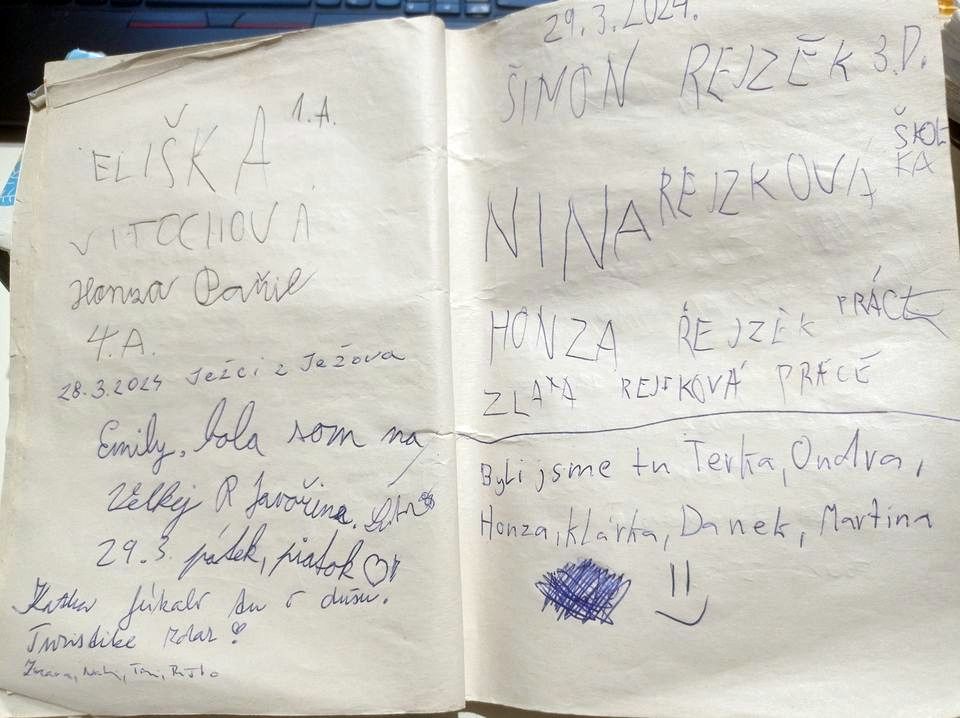 1.A.
ELIŠKA
VITOCHOVA
Honza Pařil
4.A.
28.3.2024 Ježci z Ježova
Emily, bola som na
Velkej R Javořine.
29.3. pátek, piatok ♡
Katka fúkalo tu o dušu.
Turistike zdar!
29.3.2024.
ŠIMON REJZĚK 3.D.
NINA REJZKOVÁ ŠKOL
KA
HONZA ŘEJZĚK PRÁCE
ZLATA REJZKOVÁ PRÁCE
Byli jsme tu Terka, Ondra,
Honza, Klárka, Danek, Martina